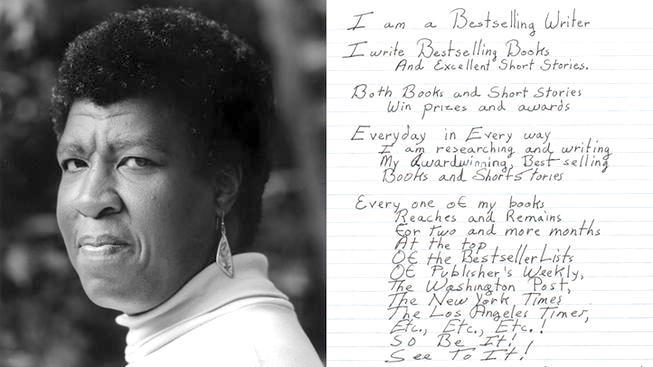 I am a Bestselling Writer
I write Bestselling Books
And Excellent Short Stories.
Both Books and Short Stories
Win prizes and awards
Everyday in Every way
I am researching and writing
My Awardwinning, Best selling
Books and Short Stories
Every one of my books
Reaches and Remains
For two and more months
At the top
Of the Bestseller Lists
Of Publisher's Weekly,
The Washington Post,
The New York Times
The Los Angeles Times,
Etc., Etc., Etc.!
So Be It!
See To It!